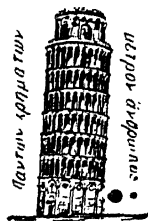 Παντων χρηματων
μετρον ἀνθρωπος